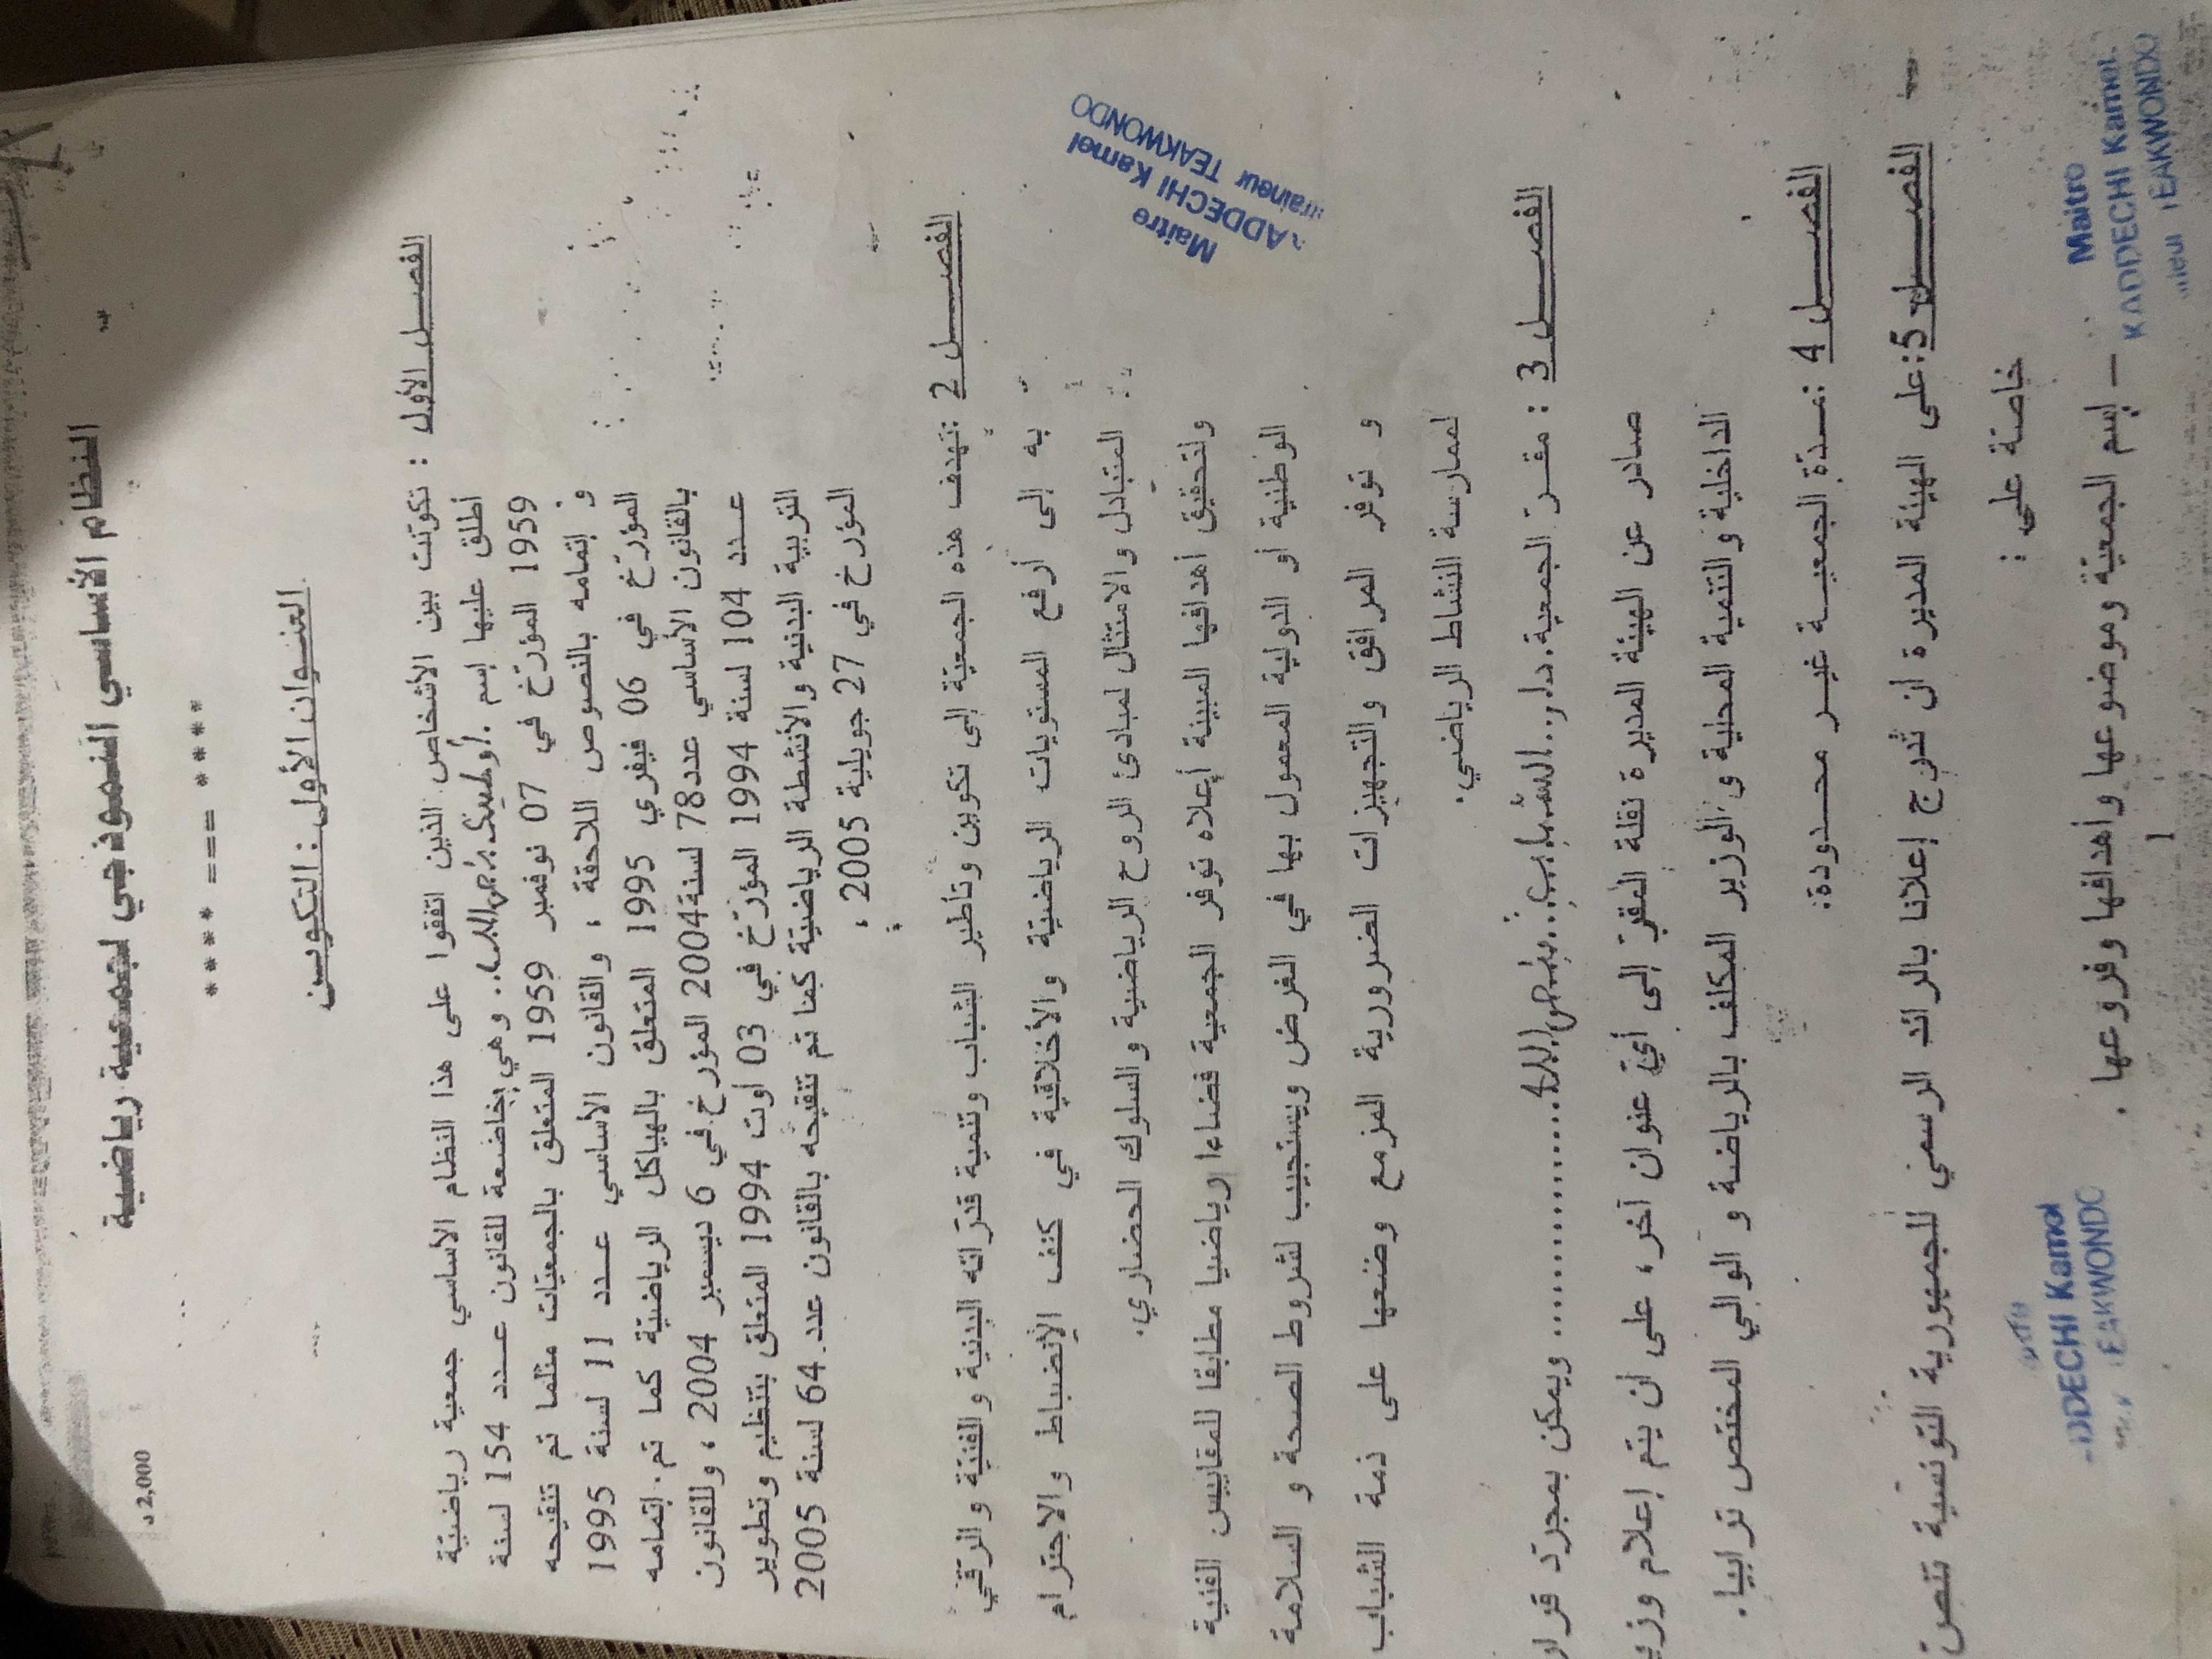 د 2,000
النظام الأساسي النموذجي لجمعية رياضية
**** === ****
العنوان الأول : التكوين
الفصل الأول : تكونت بين الأشخاص الذين اتفقوا على هذا النظام الأساسي جمعية رياضيّة
أطلق عليها إسم .. وهي خاضعة للقانون عدد 154 لسنة
1959 المؤرّخ في 07 نوفمبر 1959 المتعلق بالجمعيّات مثلما تم تنقيحه
و إتمامه بالنصوص اللاحقة ، والقانون الأساسي عدد 11 لسنة 1995
المؤرّخ في 06 فيفري 1995 المتعلق بالهياكل الرياضيّة كما تم إتمامه
بالقانون الأساسي عدد78 لسنة2004 المؤرخ في 6 ديسمبر 2004 ، وللقانون
عدد 104 لسنة 1994 المؤرّخ في 03 أوت 1994 المتعلق بتنظيم وتطوير
التربية البدنية والأنشطة الرياضيّة كما تم تنقيحه بالقانون عدد 64 لسنة 2005
المؤرخ في 27 جويلية 2005 ،
الفصل 2 :تهدف هذه الجمعيّة إلى تكوين وتأطير الشباب وتنمية قدراته البدنية والفنيّة والرقي
به إلى أرفع المستويات الرياضيّة والأخلاقية في كنف الإنضباط والاحترام
المتبادل والامتثال لمبادئ الروح الرياضية والسلوك الحضاري.
ولتحقيق أهدافها المبينة أعلاه توفر الجمعية فضاءا رياضيا مطابقا للمقاييس الفنية
الوطنية أو الدولية المعمول بها في الغرض ويستجيب لشروط الصحة و السلامة
و توفر المرافق والتجهيزات الضرورية المزمع وضعها على ذمة الشباب
لممارسة النشاط الرياضي.
الفصل 3 : مقرّ الجمعية.دار..الشباب.. ويمكن بمجرّد قرار
صادر عن الهيئة المديرة نقلة المقرّ إلى أيّ عنوان آخر، على أن يتم إعلام وزير
الداخلية والتنمية المحلية و الوزير المكلف بالرياضة و الوالي المختص ترابيا.
الفصل 4 :مدّة الجمعية غير محدودة.
الفصل 5:على الهيئة المديرة أن تدرج إعلانا بالرائد الرسمي للجمهورية التونسية تنصّ
خاصّة على :
– إسم الجمعيّة وموضوعها وأهدافها وفروعها .
1
Maitre
ADDECHI Kamel
raineur TEAKWONDO
Maitre
KADDECHI Kamel
TEAKWONDO
DDECHI Kamel
TEAKWONDO